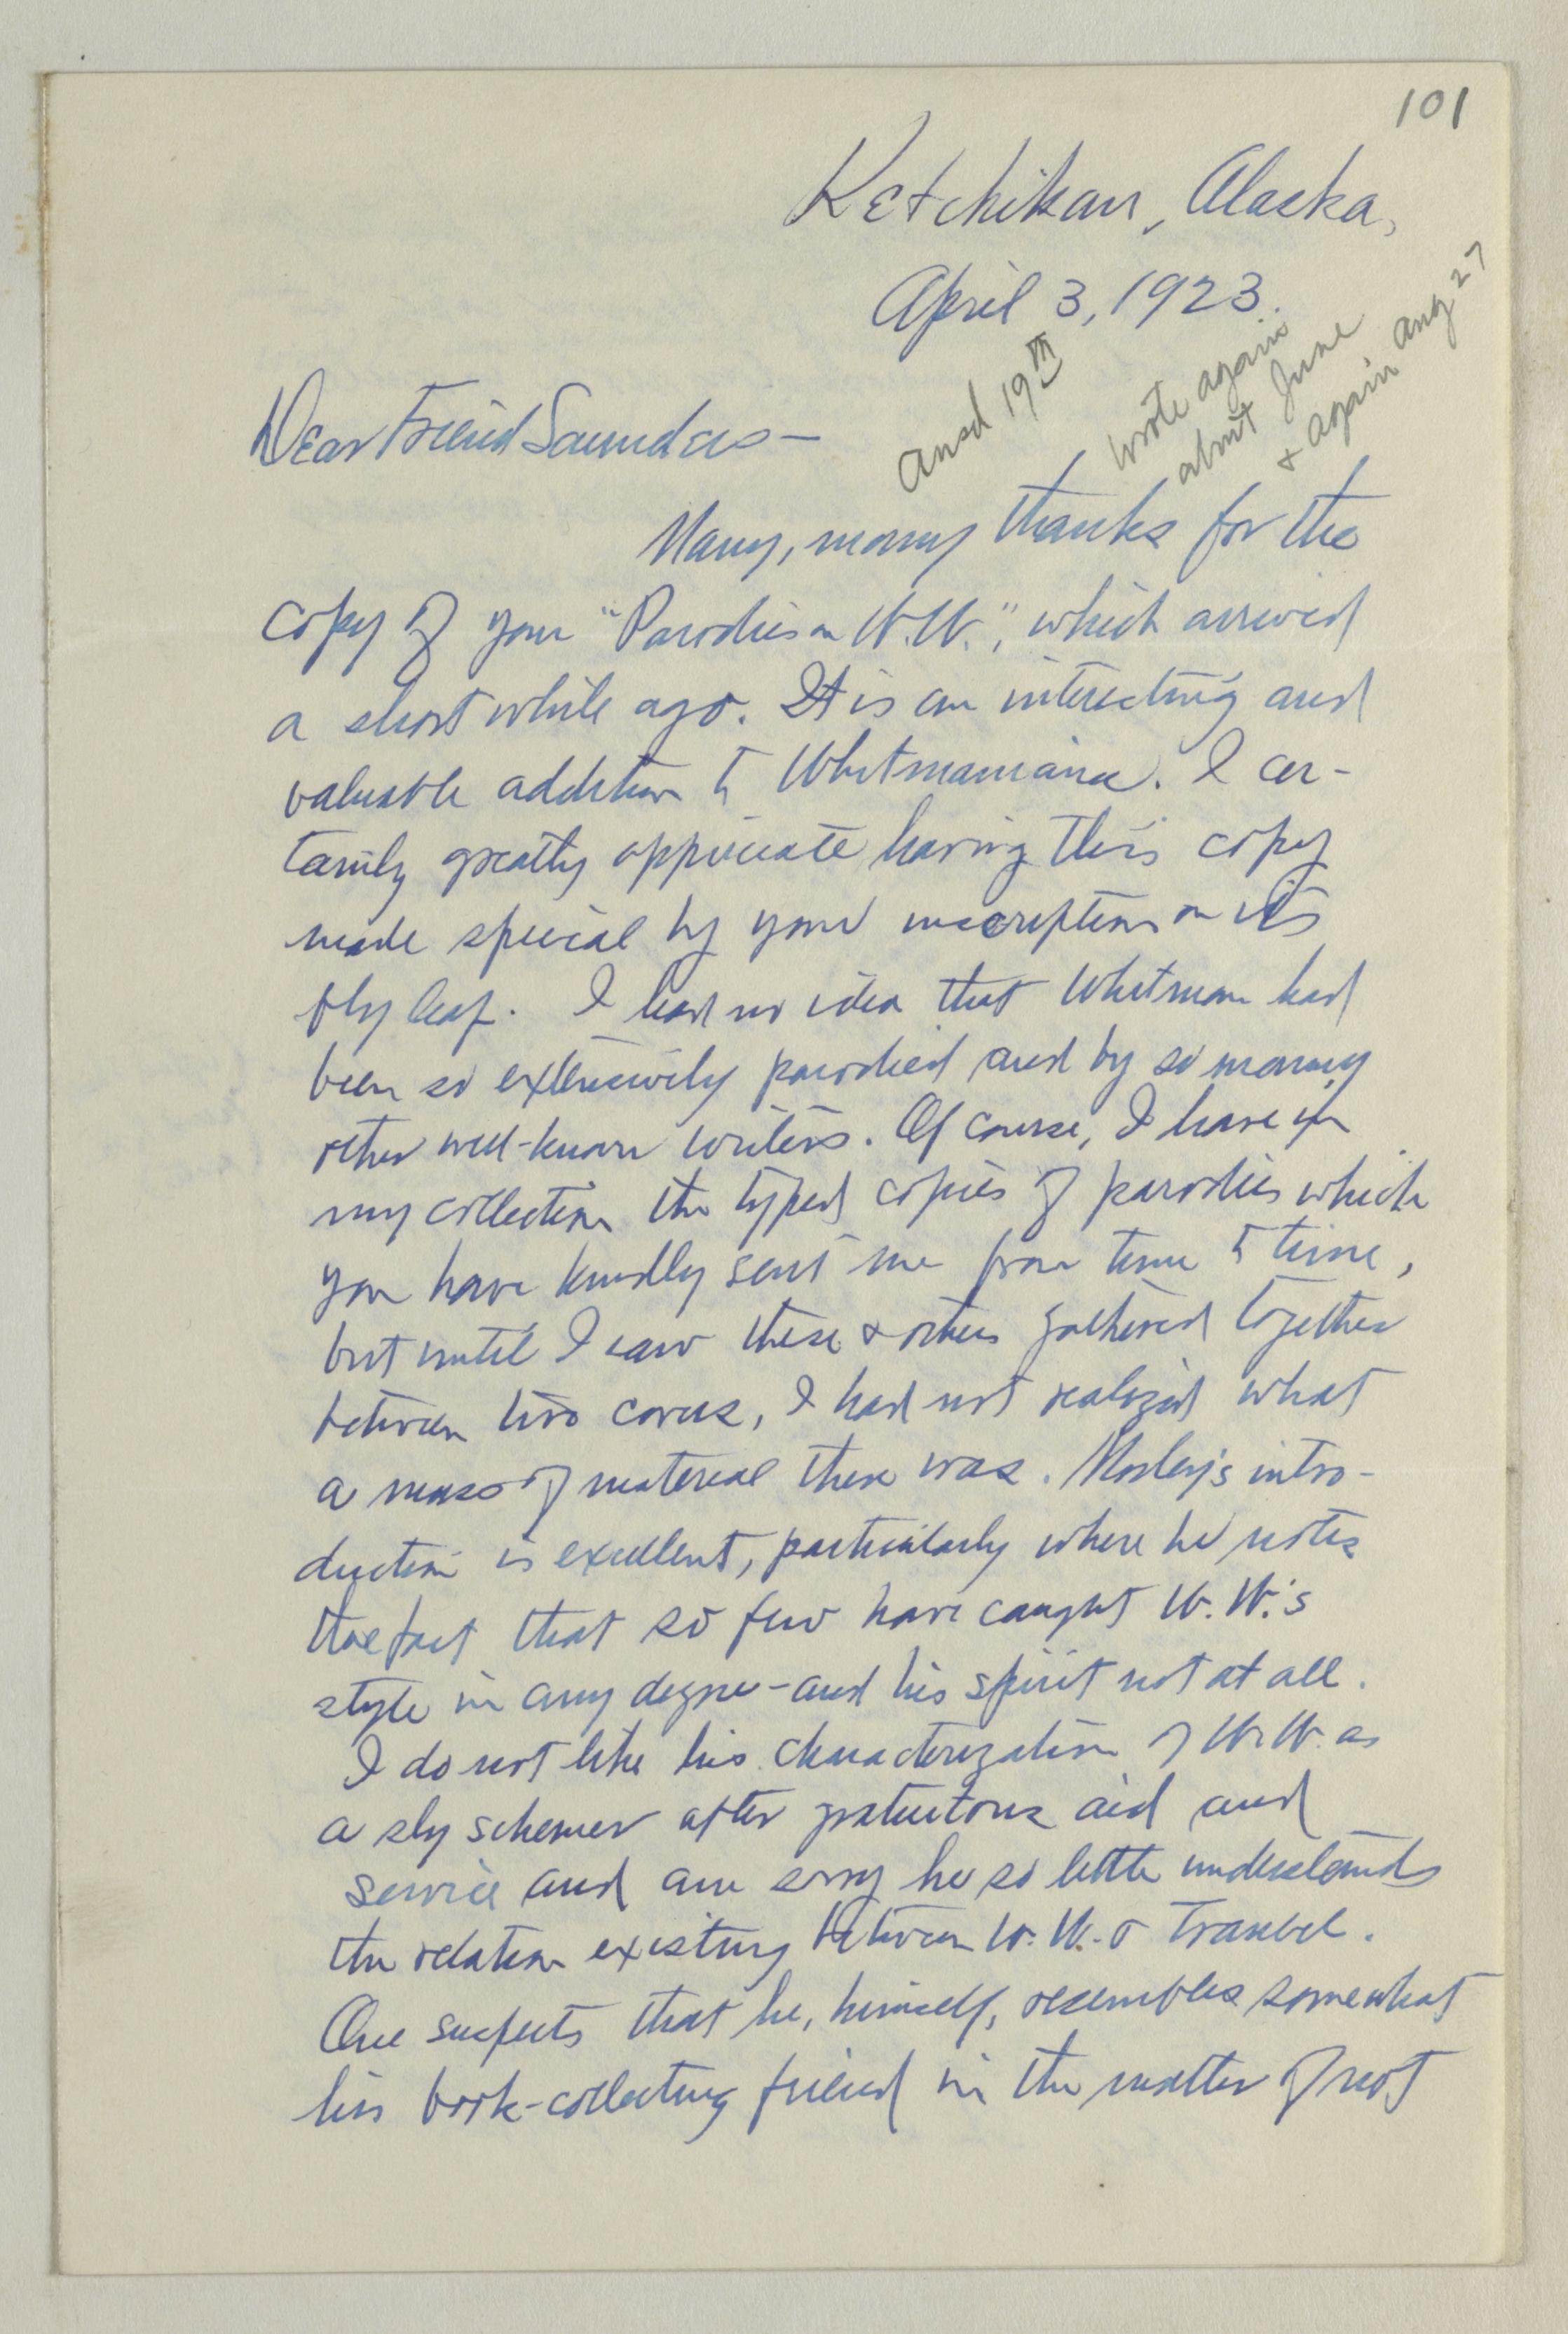 101
Ketchikan, Alaska,
April 3, 1923.
ansd 19th
wrote again
abnt June
& again Aug 27
Dear Friend Saunders —
Many, many thanks for the
copy of your "Parodies on W.W.", which arrived
a short while ago. It is an interesting and
valuable addition to Whitmaniana. I cer-
tainly greatly appreciate having this copy
made special by your inscription on its
fly leaf. I had no idea that Whitman had
been so extensively parodied and by so many
other well-known writers. Of course, I have in
my collection the typed copies of parodies which
you have kindly sent me from time to time,
but until I saw these & others gathered together
between two covers, I had not realized what
a mass of material there was. Morley's intro-
duction is excellent, particularly where he notes
the fact that so few have caught W.W.'s
style in any degree - and his spirit not at all.
I do not like his characterization of W.W. as
a sly schemer after gratuitous aid and
service and am sorry he so little understands
the relation existing between W.W. & Traubel.
One suspects that he, himself, resembles somewhat
his book-collecting friend in the matter of not